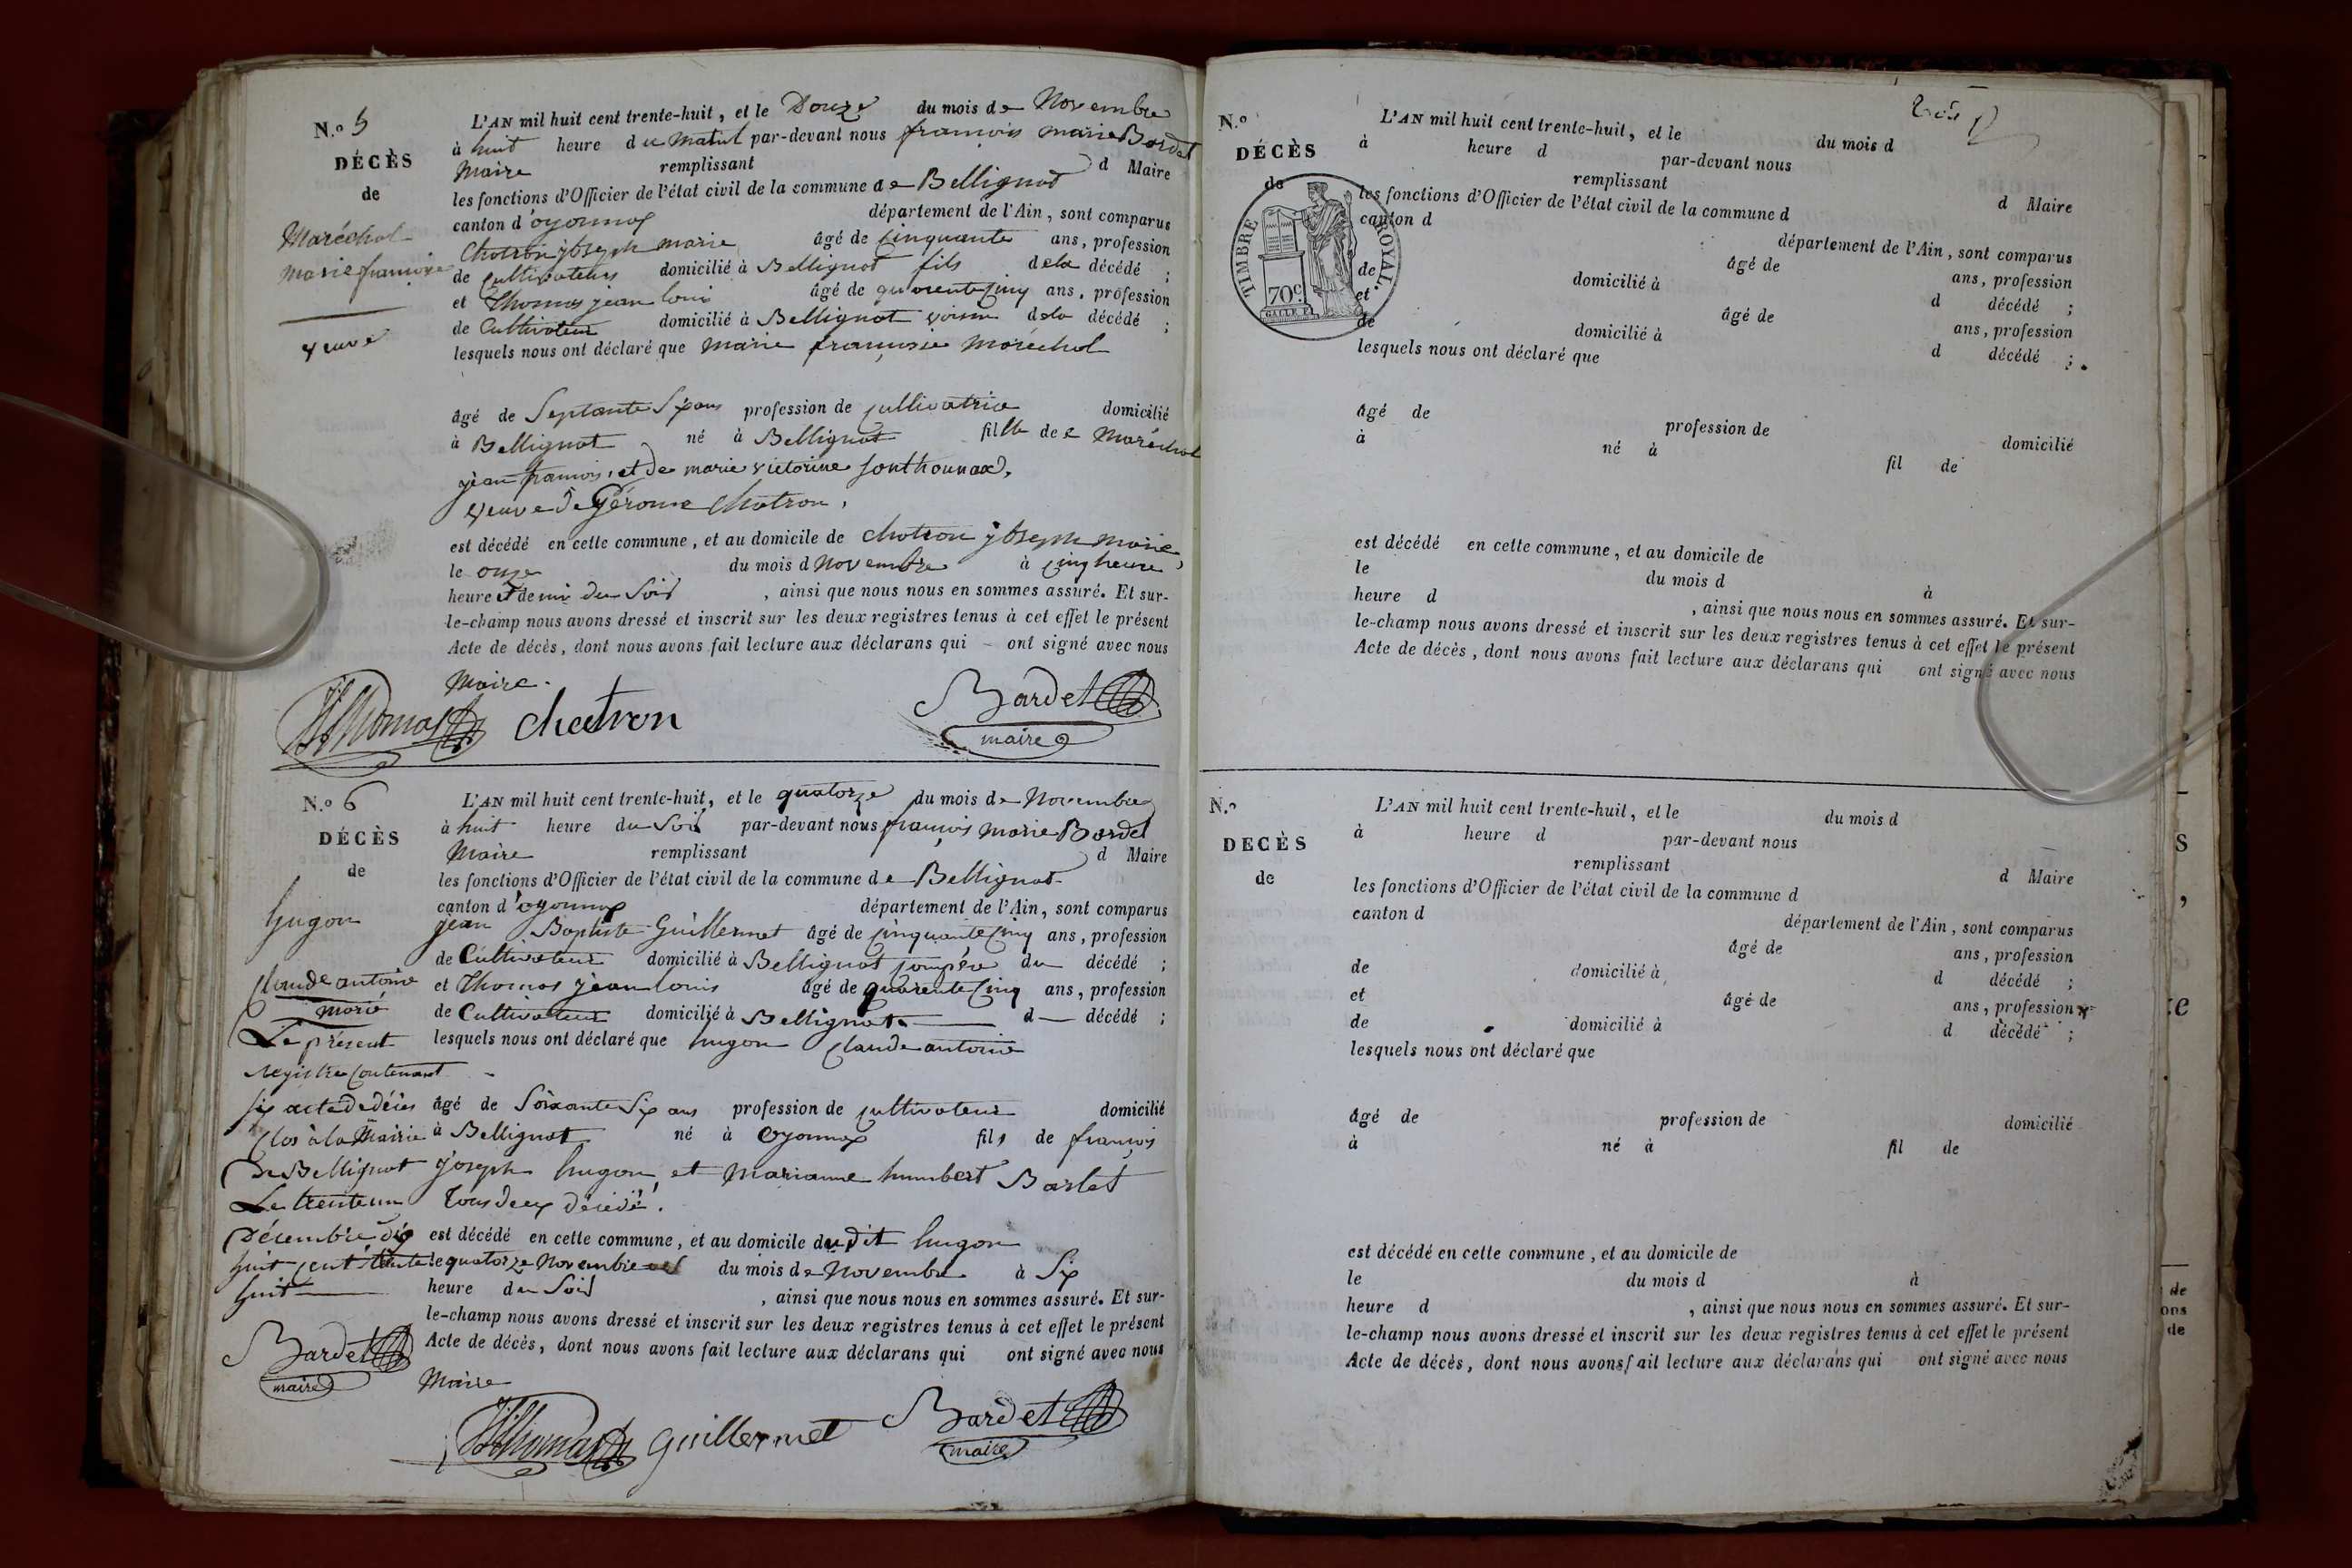 N.º 5
DÉCÈS
de
Maréchal
marie françoise
veuve
L'AN mil huit cent trente-huit, et le Douze du mois de Novembre
à huit heure du Matin par-devant nous françois marie Bardet
Maire remplissant d Maire
les fonctions d'Officier de l'état civil de la commune de Bellignat
canton d'oyonnax département de l'Ain, sont comparus
Chatron joseph marie âgé de Cinquante ans, profession
de Cultivateur domicilié à Bellignat fils dela décédé ;
et Thomas jean louis âgé de quarente Cinq ans, profession
de Cultivateur domicilié à Bellignat voisin dela décédé ;
lesquels nous ont déclaré que Marie françoise Maréchal
âgé de Septante Six ans profession de cultivatrice domicilié
à Bellignat né à Bellignat fille de Maréchal
jean françois, et de marie victorine Sonthonnax,
veuve de Gérome Chatron,
est décédé en cette commune, et au domicile de chatron joseph marie
le onze du mois d Novembre à Cinq heure
heure et demi du Soir , ainsi que nous nous en sommes assuré. Et sur-
le-champ nous avons dressé et inscrit sur les deux registres tenus à cet effet le présent
Acte de décès, dont nous avons fait lecture aux déclarans qui - ont signé avec nous
Maire.
Thomas chatron Bardet
maire
N.º 6
DÉCÈS
de
hugon
Claude antoine
marié
Le présent
registre Contenant
six acte de décès
Clos à la Mairie
de Bellignat
Le trente un
Décembre dix
huit cent trente
huit
Bardet
maire
L'AN mil huit cent trente-huit, et le quatorze du mois de Novembre
à huit heure du Soir par-devant nous françois marie Bardet
Maire remplissant d Maire
les fonctions d'Officier de l'état civil de la commune de Bellignat
canton d'oyonnax département de l'Ain, sont comparus
jean Baptiste Guillermet âgé de Cinquante Cinq ans, profession
de Cultivateur domicilié à Bellignat compère du décédé ;
et Thomas jean louis âgé de quarente Cinq ans, profession
de Cultivateur domicilié à Bellignat. d décédé ;
lesquels nous ont déclaré que hugon Claude antoine
âgé de Soixante Six ans profession de cultivateur domicilié
à Bellignat né à Oyonnax fils de françois
joseph hugon, et Marianne humbert Barlet
tous deux décédé.
est décédé en cette commune, et au domicile du dit hugon
le quatorze Novembre du mois de Novembre à Six
heure du Soir , ainsi que nous nous en sommes assuré. Et sur-
le-champ nous avons dressé et inscrit sur les deux registres tenus à cet effet le présent
Acte de décès, dont nous avons fait lecture aux déclarans qui ont signé avec nous
Maire
Thomas Guillermet Bardet
maire
N.º
DÉCÈS
de
TIMBRE ROYAL.
70 c.
L'AN mil huit cent trente-huit, et le du mois d
à heure d par-devant nous
remplissant d Maire
les fonctions d'Officier de l'état civil de la commune d
canton d département de l'Ain, sont comparus
âgé de ans, profession
de domicilié à d décédé ;
et âgé de ans, profession
de domicilié à d décédé ;
lesquels nous ont déclaré que
âgé de profession de domicilié
à né à fil de
est décédé en cette commune, et au domicile de
le du mois d à
heure d , ainsi que nous nous en sommes assuré. Et sur-
le-champ nous avons dressé et inscrit sur les deux registres tenus à cet effet le présent
Acte de décès, dont nous avons fait lecture aux déclarans qui ont signé avec nous
N.º
DECÈS
de
L'AN mil huit cent trente-huit, et le du mois d
à heure d par-devant nous
remplissant d Maire
les fonctions d'Officier de l'état civil de la commune d
canton d département de l'Ain, sont comparus
âgé de ans, profession
de domicilié à d décédé ;
et âgé de ans, profession
de domicilié à d décédé ;
lesquels nous ont déclaré que
âgé de profession de domicilié
à né à fil de
est décédé en cette commune, et au domicile de
le du mois d à
heure d , ainsi que nous nous en sommes assuré. Et sur-
le-champ nous avons dressé et inscrit sur les deux registres tenus à cet effet le présent
Acte de décès, dont nous avons fait lecture aux déclarans qui ont signé avec nous